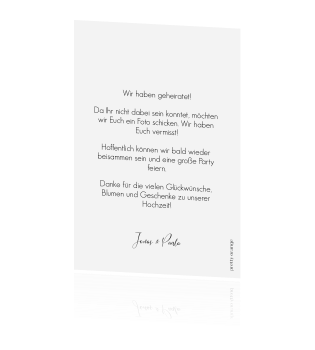 Wir haben geheiratet!
Da Ihr nicht dabei sein konntet, möchten
wir Euch ein Foto schicken. Wir haben
Euch vermisst!
Hoffentlich können wir bald wieder
beisammen sein und eine große Party
feiern.
Danke für die vielen Glückwünsche,
Blumen und Geschenke zu unserer
Hochzeit!
Jonas & Paula
pretty orange